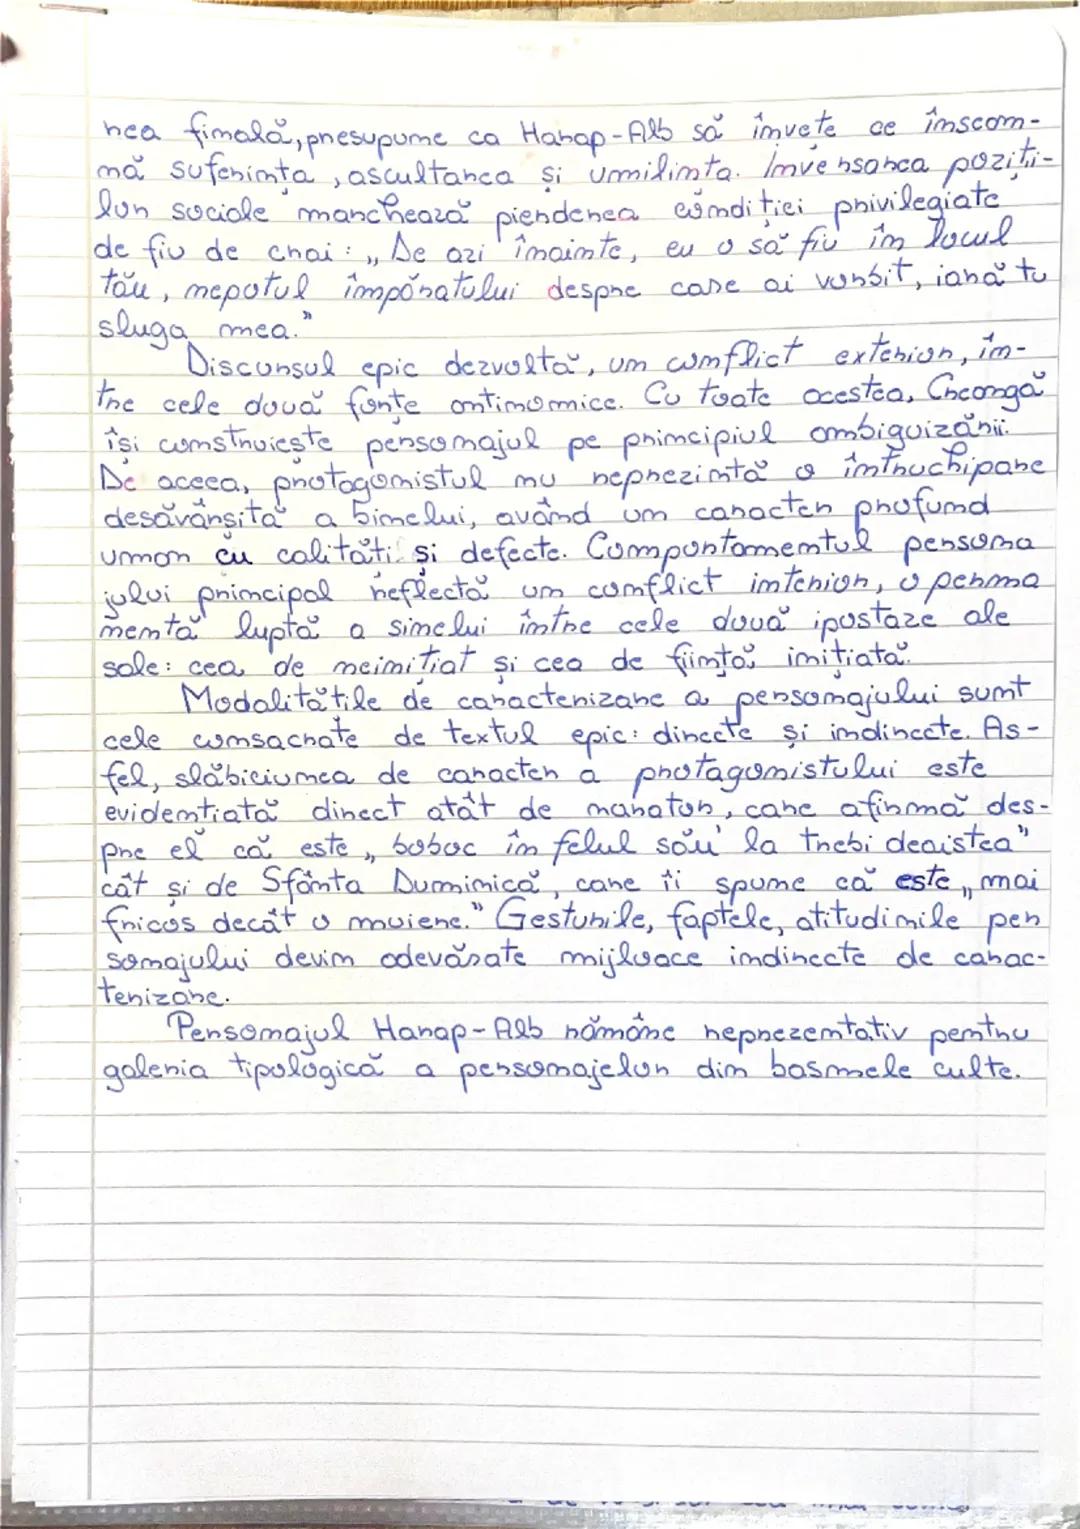 rea finală, presupune ca Harap-Alb să învețe ce înseam-
nă suferința, ascultarea și umilința. Inversarea poziți-
lor sociale marchează pierderea condiției privilegiate
de fiu de crai: „De azi înainte, eu o să fiu în locul
tău, nepotul împăratului despre care ai vorbit, iară tu
sluga mea."
Discursul epic dezvoltă, un conflict exterior, în-
tre cele două forțe antinomice. Cu toate acestea, Creangă
își construiește personajul pe principiul ambiguizării.
De aceea, protagonistul nu reprezintă o întruchipare
desăvârșită a binelui, având un caracter profund
uman cu calități și defecte. Comportamentul persona
jului principal reflectă un conflict interior, o perma
nentă luptă a sinelui între cele două ipostaze ale
sale: cea de neinițiat și cea de ființă inițiată.
Modalitățile de caracterizare a personajului sunt
cele consacrate de textul epic: directe și indirecte. As-
fel, slăbiciunea de caracter a protagonistului este
evidențiată direct atât de narator, care afirmă des-
pre el că este „boboc în felul său la trebi deaistea"
cât și de Sfânta Duminică, care îi spune că este „mai
fricos decât o muiere." Gesturile, faptele, atitudinile per
sonajului devin adevărate mijloace indirecte de carac-
terizare.
Personajul Harap-Alb rămâne reprezentativ pentru
galeria tipologică a personajelor din basmele culte.